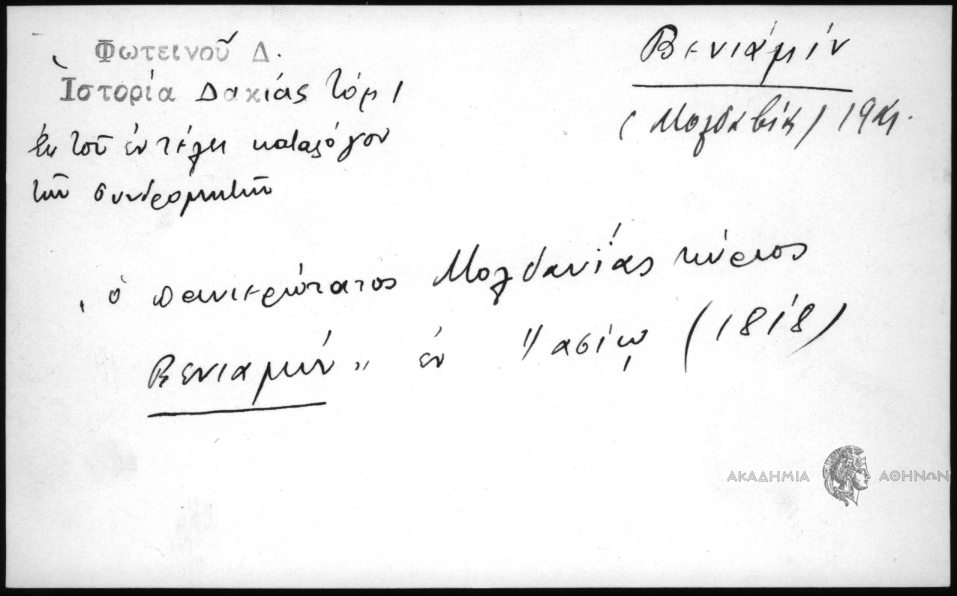 Φωτεινοῦ Δ.
Ἱστορία Δακίας Τόμ 1
ἐκ τοῦ ἐν τέλει καταλόγου
τῶν συνδρομητῶν
Βενιαμίν
(Μολδαβία)
„ ὁ πανιερώτατος Μολδαυΐας κύριος
Βενιαμίν „ ἐν Ἰασίῳ (1818)
ΑΚΑΔΗΜΙΑ ΑΘΗΝΩΝ